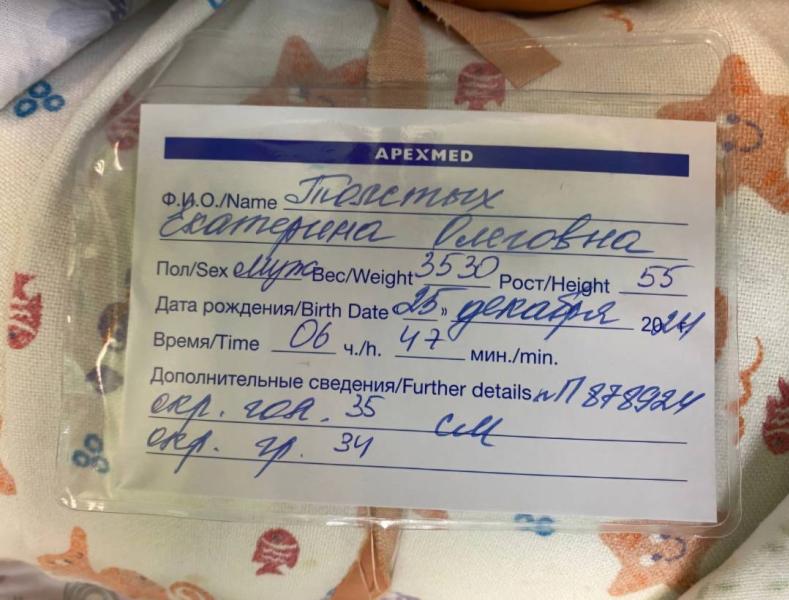 APEXMED
Ф.И.О./Name Толстых
Екатерина Олеговна
Пол/Sex муж Вес/Weight 3530 Рост/Height 55
Дата рождения/Birth Date 25 » декабря 2024
Время/Time 06 ч./h. 47 мин./min.
Дополнительные сведения/Further details иП 878924
окр. гол. 35 см
окр. гр. 34